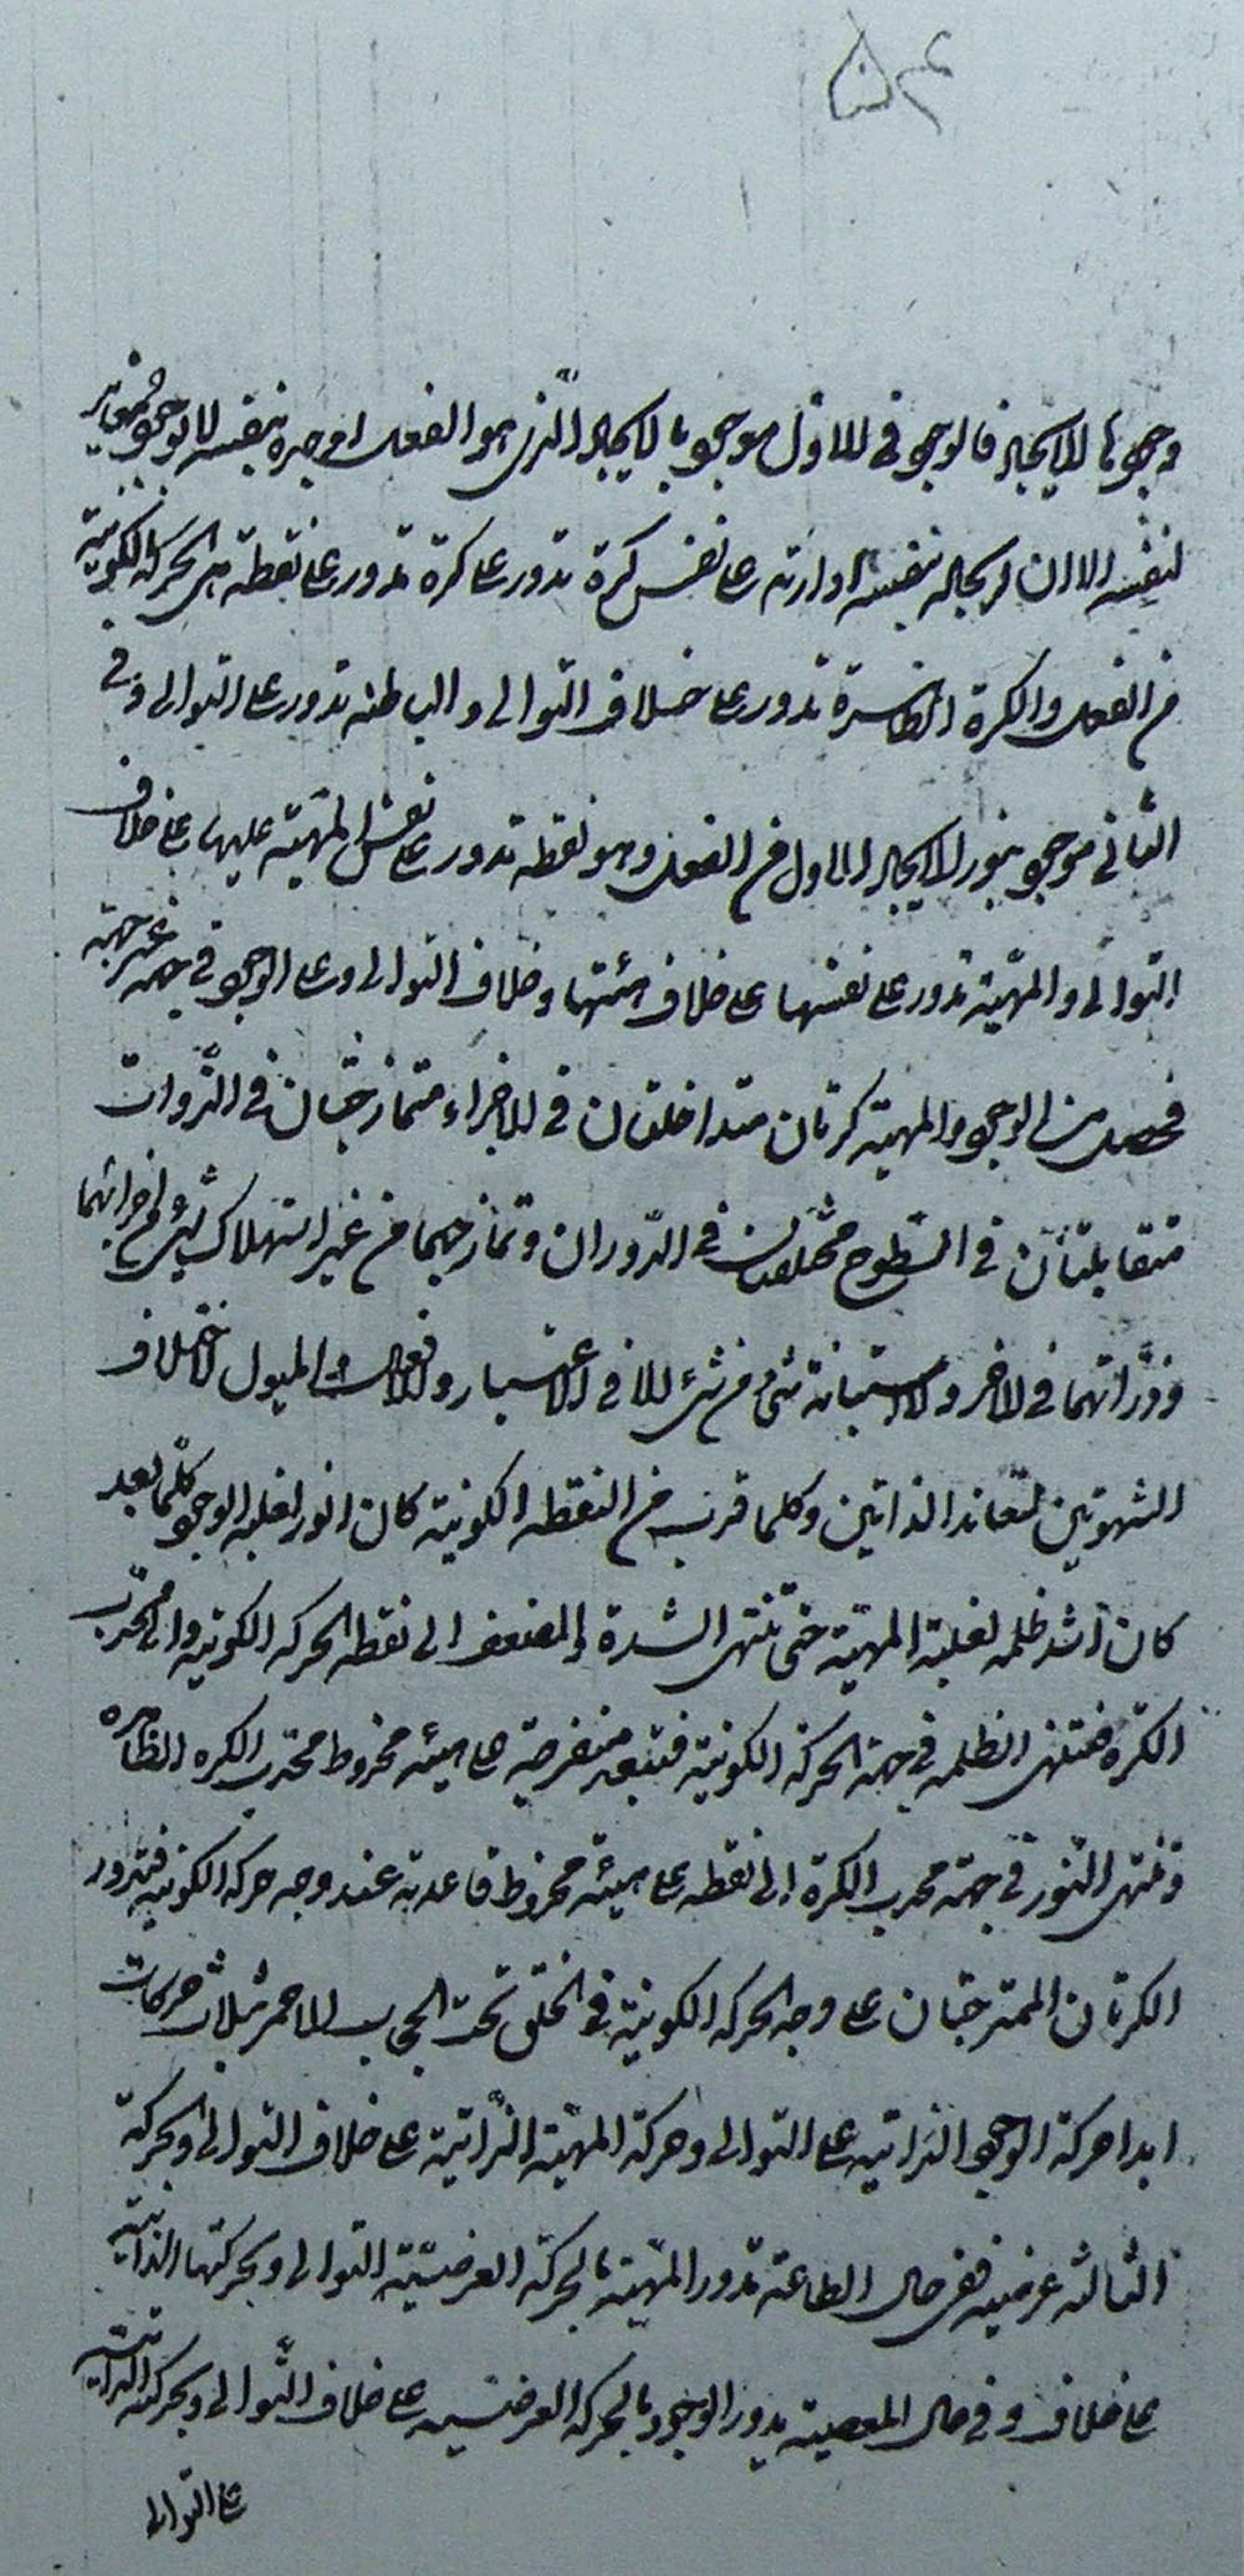 وجوها للايجاد فالوجود فى الاول موجود بالايجاد الذى هو الفعل اوجده بنفسه لا بوجود مغاير
لنفسه الا ان ايجاده بنفسه ادارته على نفس كرة تدور على كرة تدور على نقطة هى الحركة الكونية
من الفعل والكرة الظاهرة تدور على خلاف التوالى والباطنه تدور على التوالى وفى
الثانى موجود بنور الايجاد الاول من الفعل وهو نقطه تدور على نفس المهيّة عليها على خلاف
التوالى والمهيّة تدور على نفسها على خلاف هيئتها وخلاف التوالى وعلى الوجود فى جهه غير جهته
فحصل من الوجود والمهية كرتان متداخلتان فى الاجزاء متمازجتان فى الذّوات
متقابلتان فى السّطوح مختلفتان فى الدّوران وتمازجهما من غير استهلاك شىء من اجزائهما
وذرّاتهما فى الاخر ولا استبانة شىء من شىء الا فى الاعتبار والافعال والميول لاختلاف
الشهوتين لتعاند الذاتين وكلما قرب من النقطه الكونية كان انور لغلبه الوجود وكلّما بعد
كان اشد ظلمه لغلبة المهيّة حتى تنتهى الشدة والضعف الى نقطه الحركه الكونيه والى محدّب
الكرة فتنتهى الظلمه فى جهة الحركة الكونية فتبعد منفرجة على هيئه مخروط محدب الكره الظاهره
وتنتهى النّور فى جهة محدب الكرة الى نقطه على هيئه مخروط قاعدته عند وجه حركه الكونيه فتدور
الكرتان الممتزجتان على وجه الحركه الكونية فى الخلق تحت الحجاب الاحمر بثلاث حركات
ابدا حركة الوجود الذاتيه على التوالى وحركة المهيّة الذّاتية على خلاف التوالى والحركة
الثالثه عرضيه ففى حال الطاعة تدور المهيّة بالحركة العرضيّة التوالى وبحركتها الذاتية
على خلاف وفى حال المعصية يدور الوجود بالحركه العرضيه على خلاف التّوالى وبحركته الذاتية
على التوالى